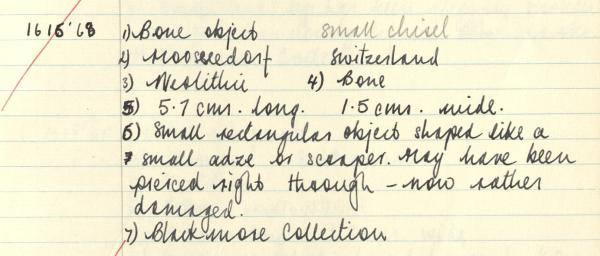 1615'68 1) Bone object small chisel
2) Mooseedorf Switzerland
3) Neolithic 4) Bone
5) 5.7 cms. long. 1.5 cms. wide.
6) Small rectangular object shaped like a
small adze or scraper. May have been
pierced right through - now rather
damaged.
7) Blackmore Collection